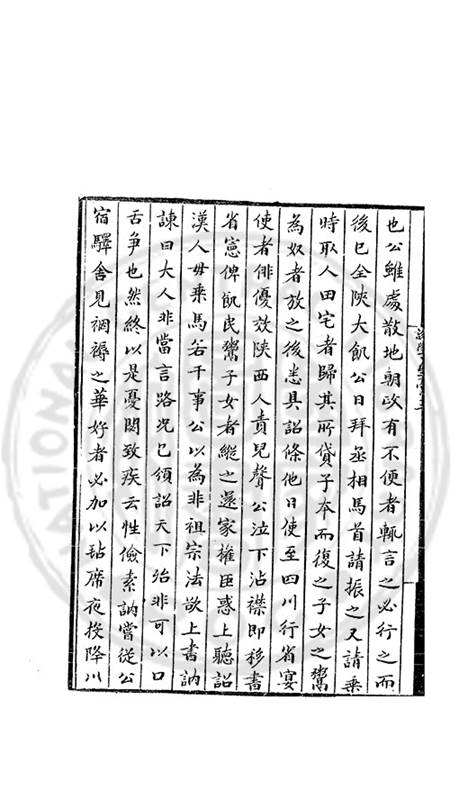 也公雖處散地朝政有不便者輒言之必行之而
後已全陜大飢公日拜丞相馬首請振之又請乗
時取人田宅者歸其所貸子本而復之子女之鬻
為奴者放之後悉具詔條他日使至四川行省宴
使者俳優效陜西人賣兒聲公泣下沾襟即移書
省憲俾飢民鬻子女者縱之還家權臣惑上聽詔
漢人毋乗馬若干事公以為非祖宗法欲上書訥
諫曰大人非當言路况已頒詔天下殆非可以口
舌争也然終以是憂悶致疾云性儉素訥嘗從公
宿驛舍見裀褥之華好者必加以毡席夜投降川